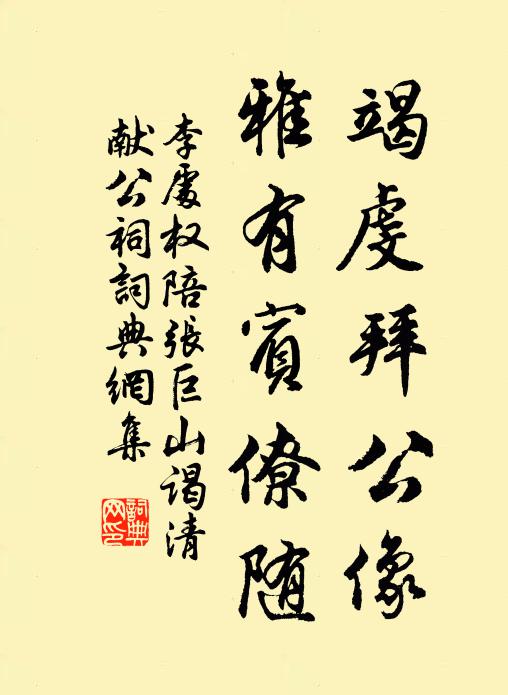 竭虔拜公像
雅有賓僚随
李處权陪張巨山谒清
献公祠詞典網集
詞典网印